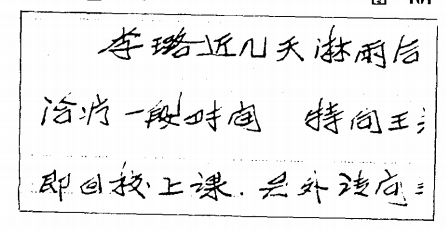 李璐近几天淋雨后
治疗一段时间 特向王
即回校上课. 另外请向